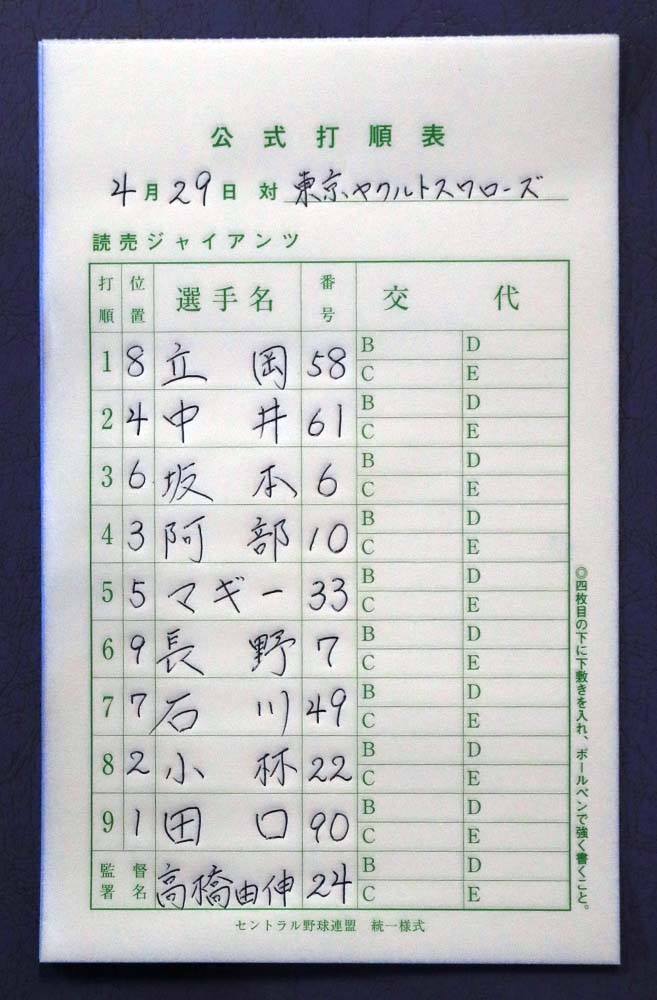 公式打順表
4月29日 対 東京ヤクルトスワローズ
読売ジャイアンツ
打順 位置 選手名 番号 交代
1 8 立岡 58 B D C E
2 4 中井 61 B D C E
3 6 坂本 6 B D C E
4 3 阿部 10 B D C E
5 5 マギー 33 B D C E
6 9 長野 7 B D C E
7 7 石川 49 B D C E
8 2 小林 22 B D C E
9 1 田口 90 B D C E
監督署名 高橋由伸 24 B D C E
◎四枚目の下に下敷きを入れ、ボールペンで強く書くこと。
セントラル野球連盟 統一様式